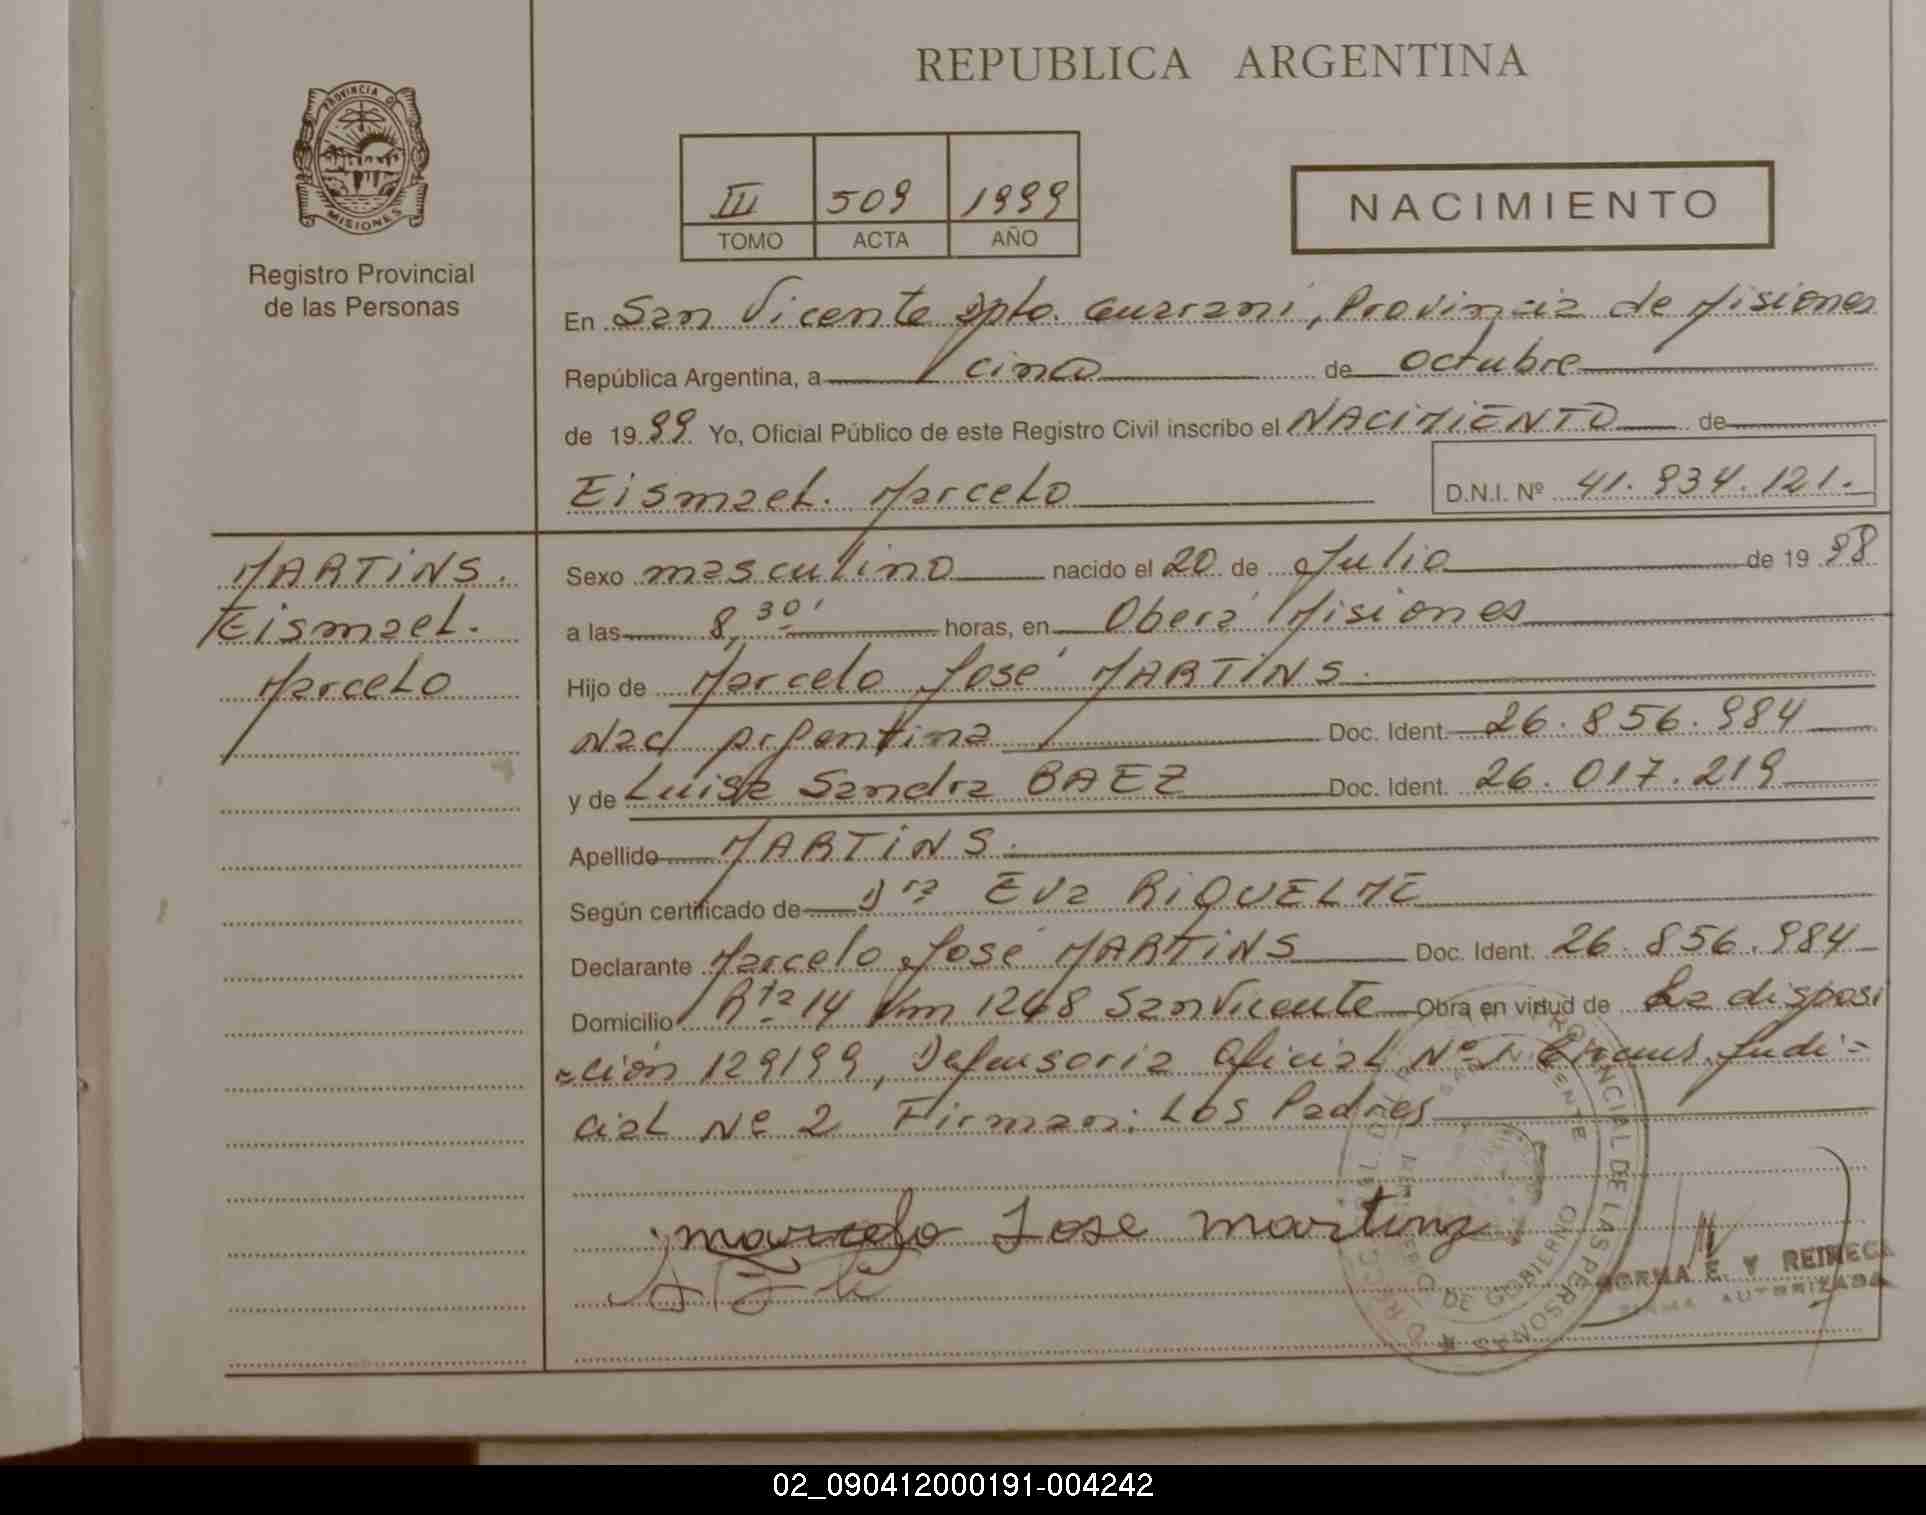 REPUBLICA ARGENTINA
PROVINCIA DE
MISIONES
Registro Provincial
de las Personas
III 509 1999
TOMO ACTA AÑO
NACIMIENTO
En San Vicente Dpto. Guarani, Provincia de Misiones
República Argentina, a cinco de octubre
de 1999 Yo, Oficial Público de este Registro Civil inscribo el NACIMIENTO de
Eismael. Marcelo D.N.I. Nº 41.934.121.
MARTiNS.
Eismael.
Marcelo
Sexo masculino nacido el 20 de Julio de 1998
a las 8,30' horas, en Oberá Misiones
Hijo de Marcelo José MARTiNS.
Nac Argentina Doc. Ident. 26.856.984
y de Luisa Sandra BAEZ Doc. Ident. 26.017.219
Apellido MARTiNS.
Según certificado de Dra Eva RiQUELME
Declarante Marcelo José MARTiNS Doc. Ident. 26.856.984
Domicilio Rta 14 Km 1268 San Vicente Obra en virtud de La disposi
=ción 129199, Defensoria Oficial Nº 1 Circuns. Judi=
cial Nº 2 Firman: Los Padres
marcelo Jose martinz
NORMA E. Y REINECK
FIRMA AUTORIZADA
PROVINCIAL DE LAS PERSONAS
SAN VICENTE
DE GOBIERNO
02_090412000191-004242